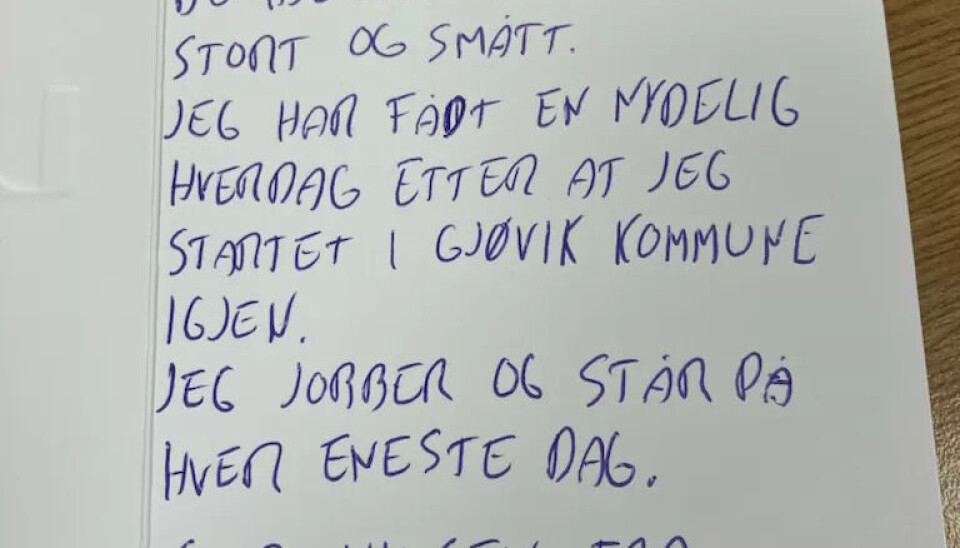 STORT OG SMÅTT.
JEG HAR FÅDT EN NYDELIG
HVERDAG ETTER AT JEG
STARTET I GJØVIK KOMMUNE
IGJEN.
JEG JORBBER OG STÅR PÅ
HVER ENESTE DAG.